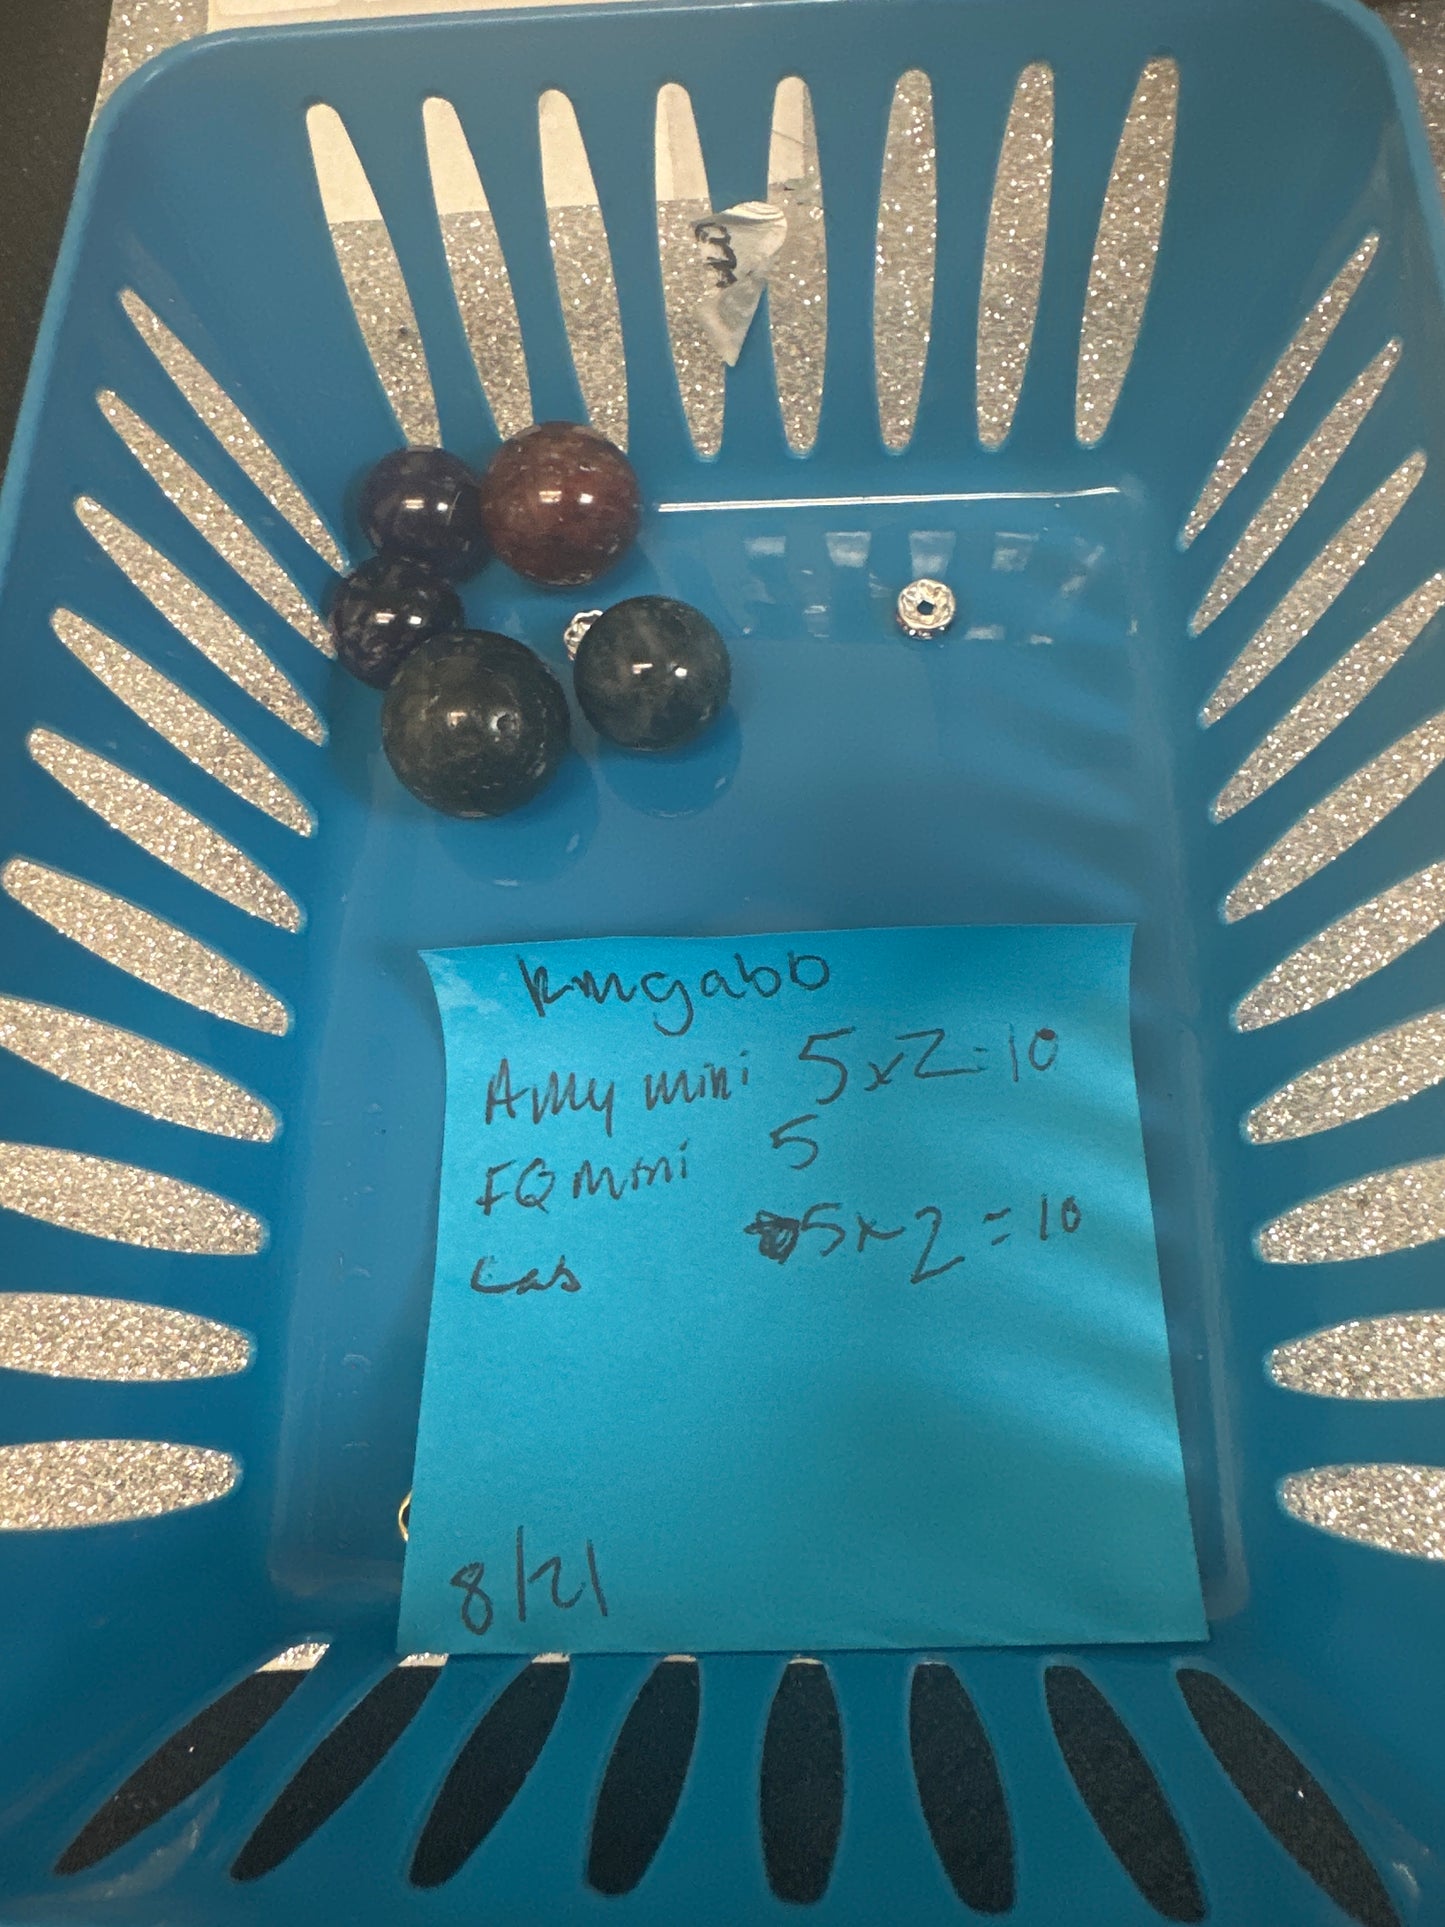 kmgabb
Amy mini 5x2=10
FQ mini 5
Lab 5x2=10
8/21